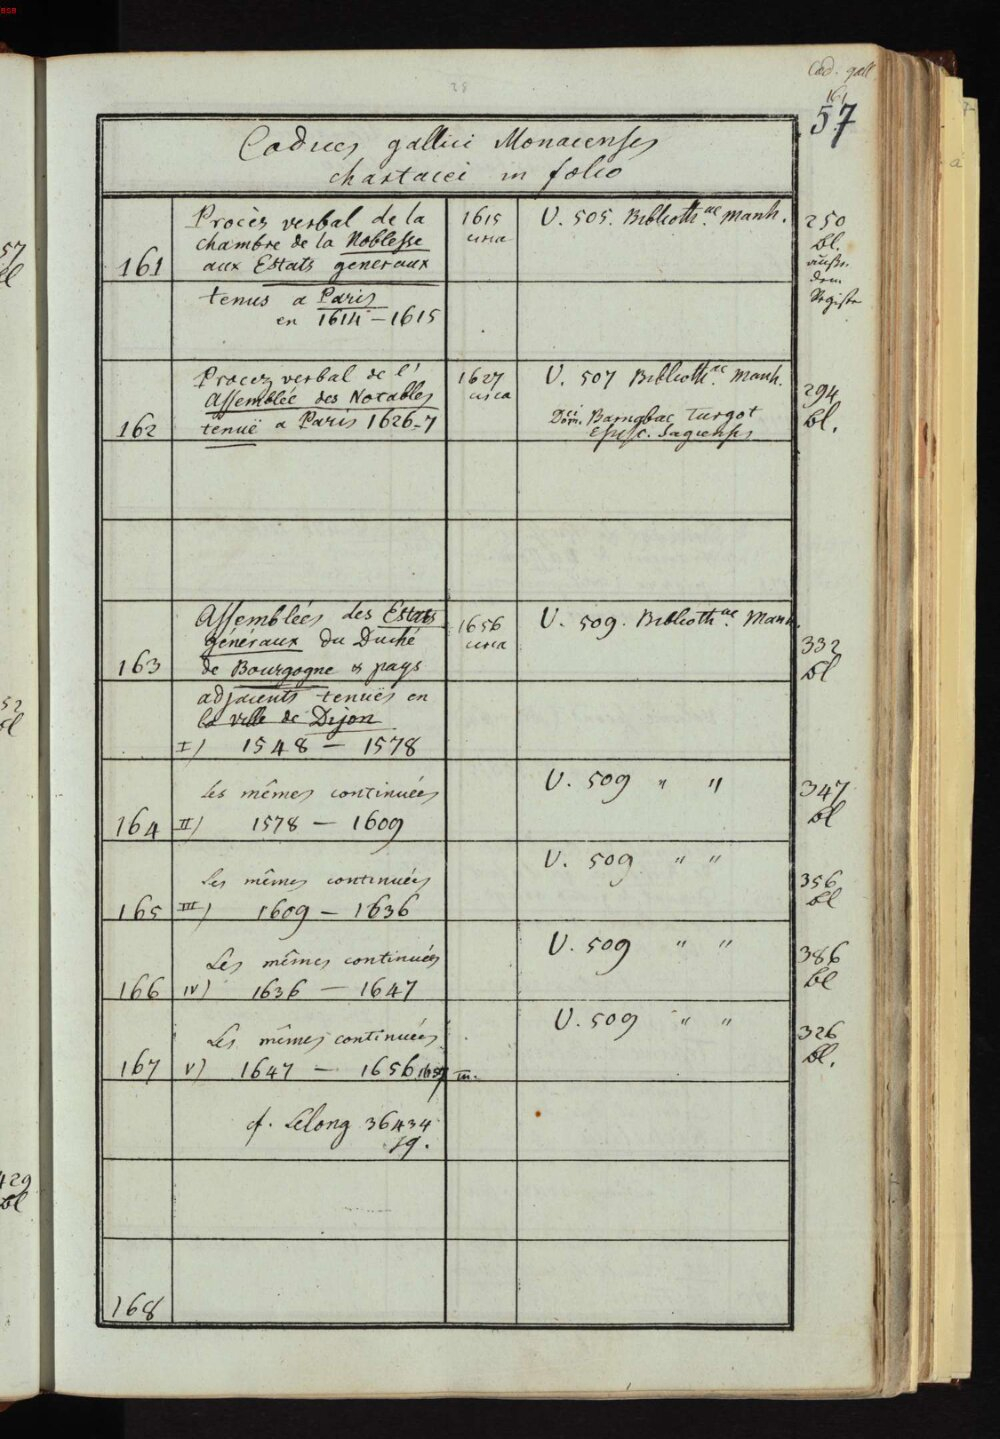 BSB
Cod. gall
161
57
Codices gallici Monacenses
chartacei in folio
161
Procès verbal de la
chambre de la Noblesse
aux Estats generaux
tenus a Paris
en 1614 – 1615
1615
circa
U. 505. Biblioth.ae Manh.
250
bl.
außr.
dem
Registr
162
Procez verbal de l'
Assemblée des Notables
tenuë a Paris 1626-7
1627
circa
U. 507 Biblioth.ae Manh.
Dom. Barnabae Turgot
Episc. Sagiensis
294
bl.
163
Assemblées des Estats
généraux du Duché
de Bourgogne & pays
adjacents tenuës en
la ville de Dijon
I) 1548 – 1578
1656
circa
U. 509. Biblioth.ae Manh.
332
bl
164
Les mêmes continuées
II) 1578 – 1609
U. 509 " "
347
bl
165
Les mêmes continuées
III) 1609 – 1636
U. 509 " "
356
bl
166
Les mêmes continuées
IV) 1636 – 1647
U. 509 " "
386
bl
167
Les mêmes continuées
V) 1647 – 1656
U. 509 " "
326
bl.
cf. Lelong 36434
sq.
168
57
bl
52
bl
429
bl